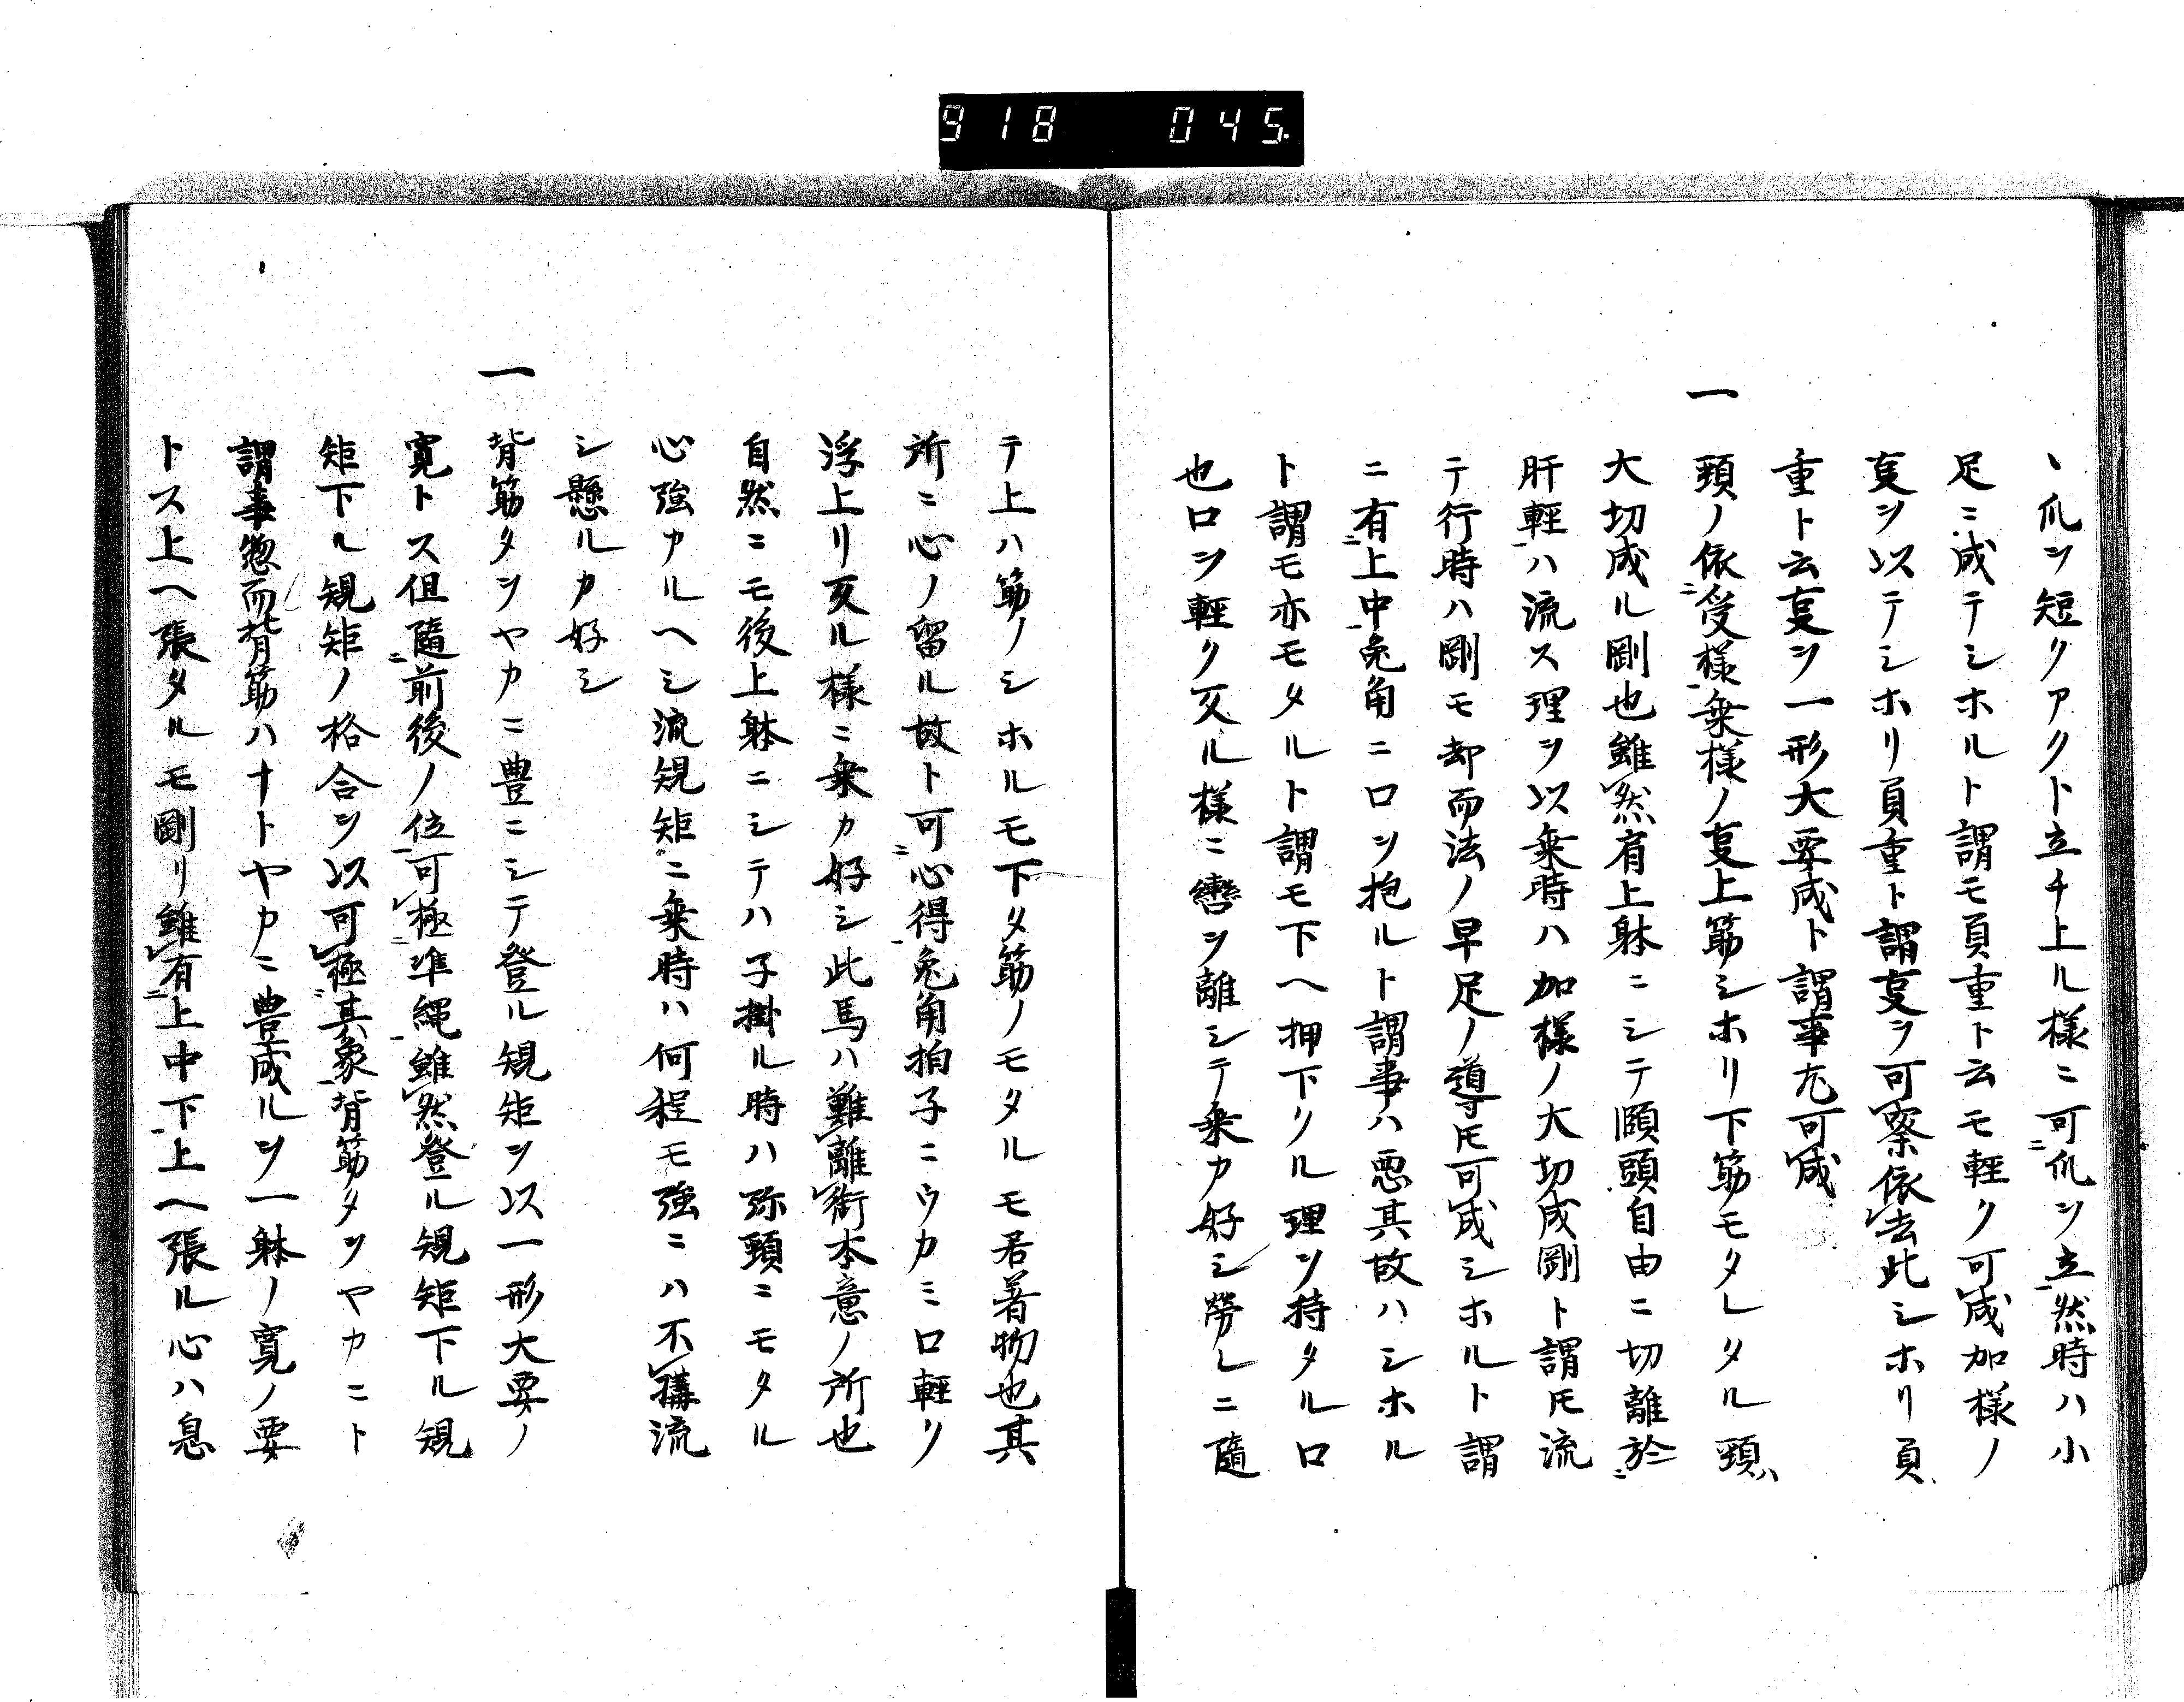 918 045.
、爪ヲ短クアクト立チ上ル様ニ可爪ヲ立然時ハ小
足ニ成テシホルト謂モ頁重ト云モ軽ク可成加様ノ
㕝ヲ以テシホリ頁重ト謂㕝ヲ可察依去此シホリ頁
重ト云㕝ヲ一形大要成ト謂事尤可成
一 頸ノ依受様乗様ノ㕝上筋シホリ下筋モタレタル頸ハ
大切成ル剛也雖然肩上躰ニシテ頤頭自由ニ切離於
肝軽ハ流ス理ヲ以乗時ハ加様ノ大切成剛ト謂𪜈流
テ行時ハ剛モ却而法ノ早足ノ導𪜈可成シホルト謂
ニ有上中兎角ニロヲ抱ルト謂事ハ悪其故ハシホル
ト謂モ亦モタルト謂モ下ヘ押下クル理ヲ持タルロ
也ロヲ軽ク㕛ル様ニ轡ヲ離シテ乗カ好シ労レニ随
テ上ハ筋ノシホルモ下タ筋ノモタルモ若着物也其
所ニ心ノ留ル故ト可心得兎角拍子ニウカミロ軽ク
浮上リ㕛ル様ニ乗カ好シ此馬ハ難離衘本意ノ所也
自然ニモ後上躰ニシテハ子掛ル時ハ弥頸ニモタル
心強カルヘシ流規矩ニ乗時ハ何程モ強ニハ不構流
シ懸ルカ好シ
一 背筋タヲヤカニ豊ニシテ登ル規矩ヲ以一形大要ノ
寛トス但随前後ノ位可極準縄雖然登ル規矩下ル規
矩下ル規矩ノ格合ヲ以可極其象背筋タヲヤカニト
謂事惣而背筋ハナトヤカニ豊成ルヲ一躰ノ寛ノ要
トス上ヘ張タルモ剛リ雖有上中下上ヘ張ル心ハ息